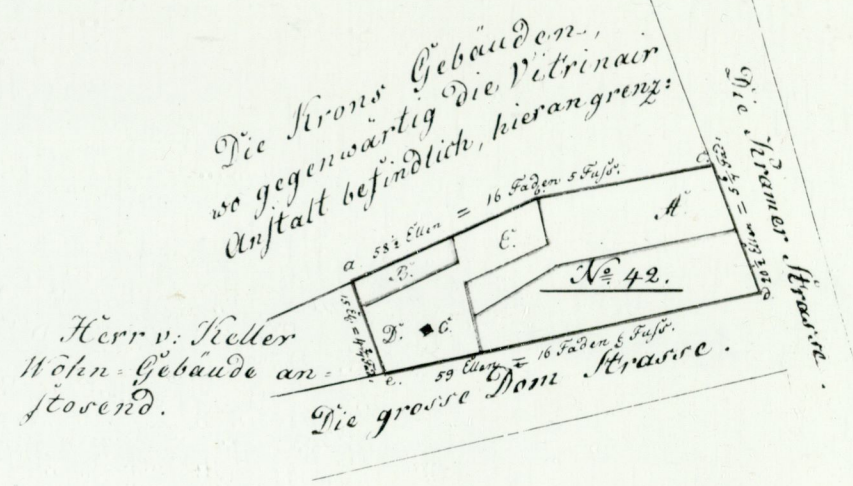 Die Krons Gebäuden,
wo gegenwärtig die Vitrinair
Anstalt befindlich, hieran grenz:
Die Kramer Strasse.
a
58½ Ellen = 16 Faden 5 Fuss.
A.
B.
E.
D.
C.
No. 42.
e.
59 Ellen = 16 Faden 6 Fuss.
Herr v: Keller
Wohn-Gebäude an-
stosend.
Die grosse Dom Strasse.